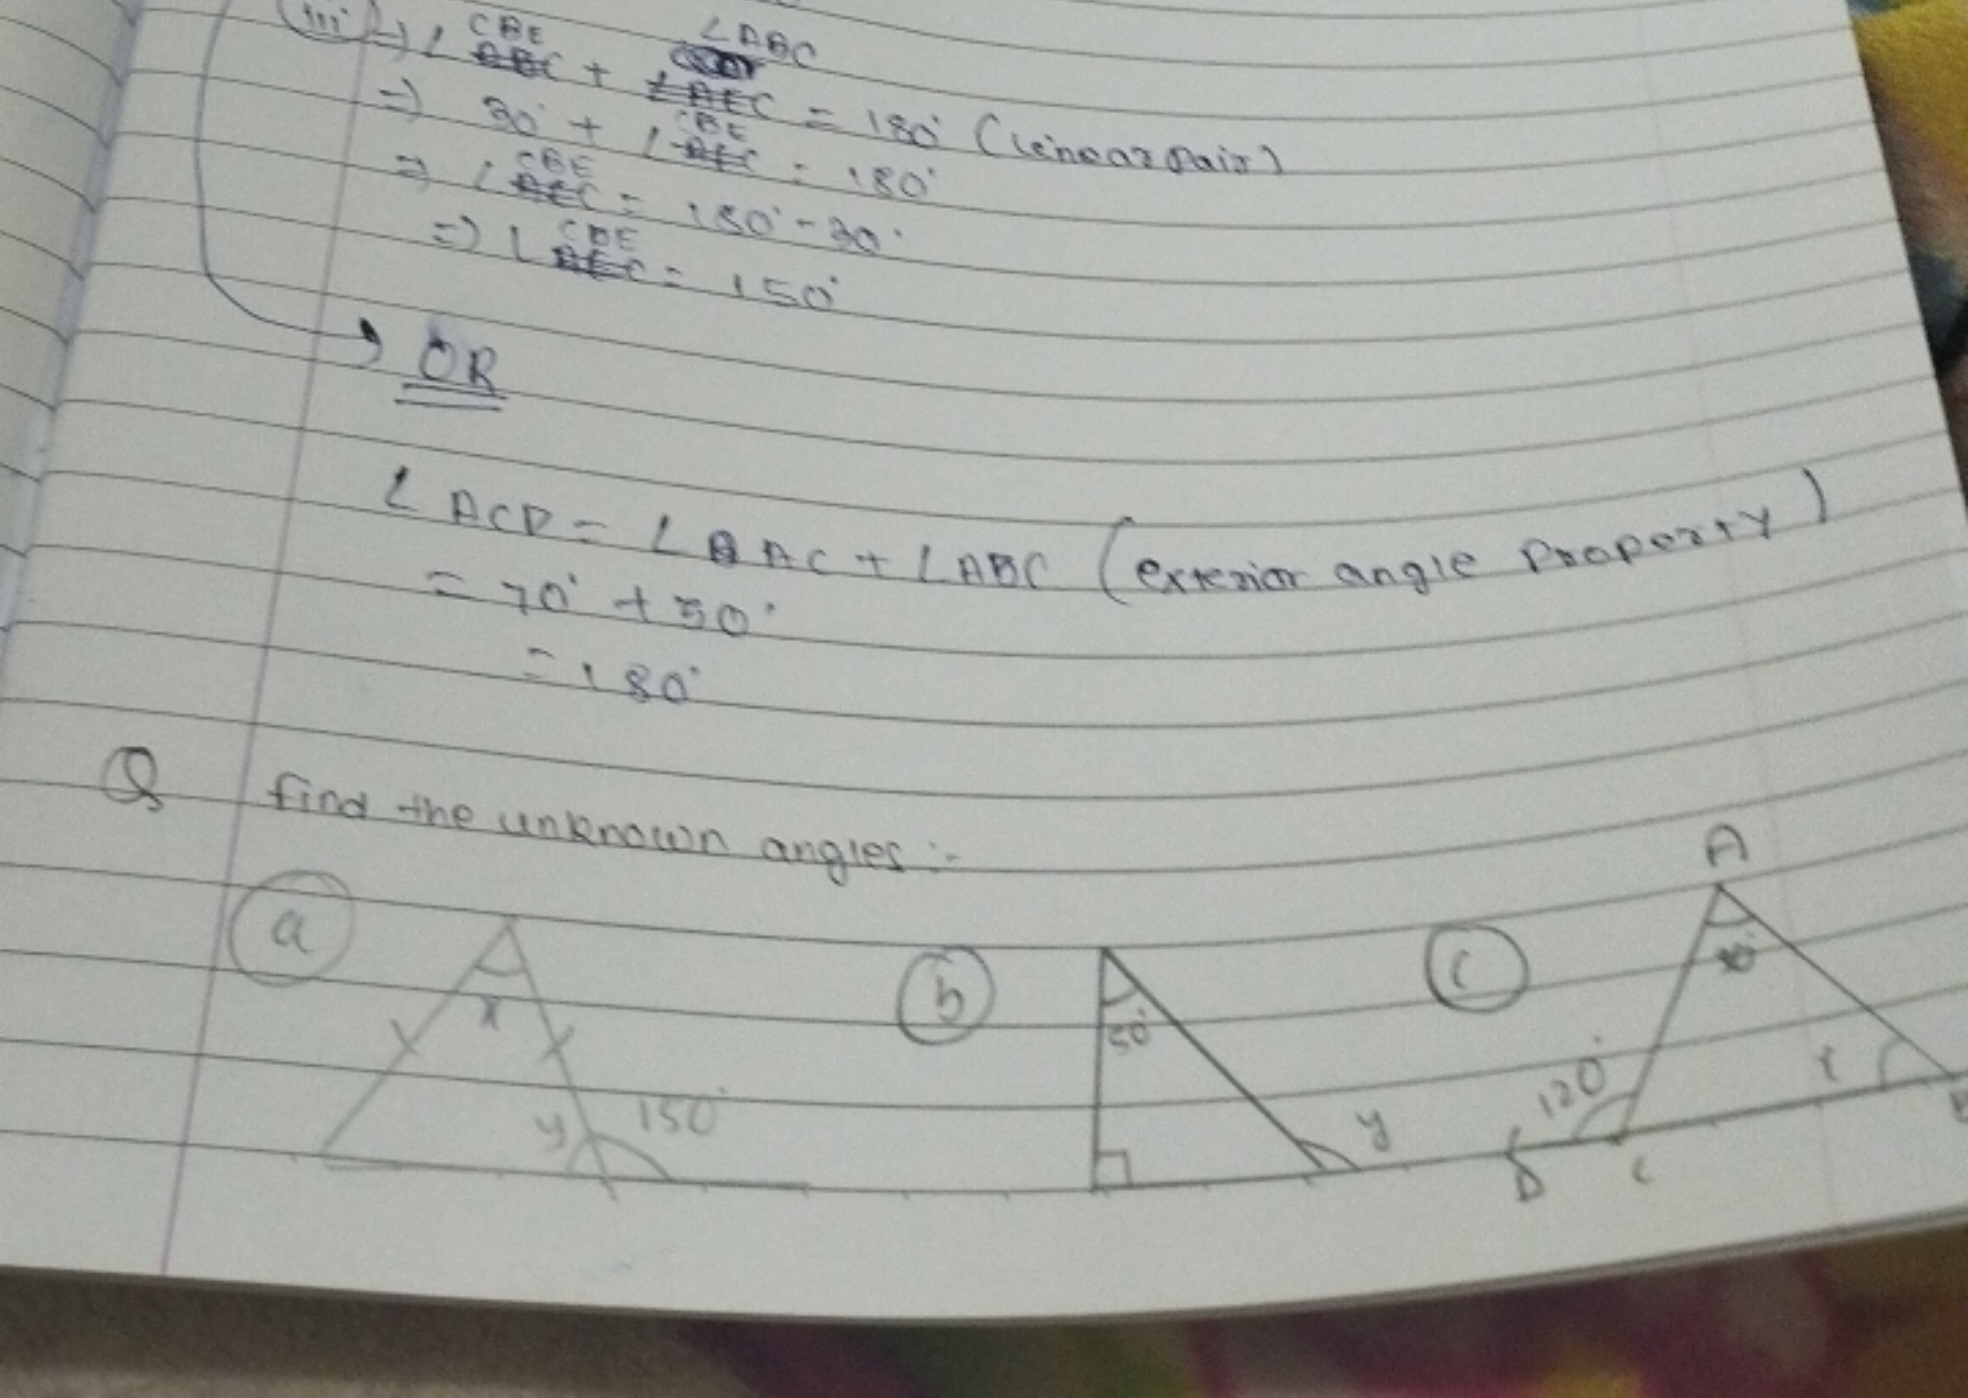 (iii) => ∠CBE + ∠ABC = 180° (Linear Pair)
=> 30° + ∠CBE = 180°
=> ∠CBE = 180° - 30°
=> ∠CBE = 150°
OR
∠ACD = ∠BAC + ∠ABC (exterior angle Property)
= 70° + 50°
= 180°
Q find the unknown angles :-
a b c
A
x 50°
y 150° y 120°
D C